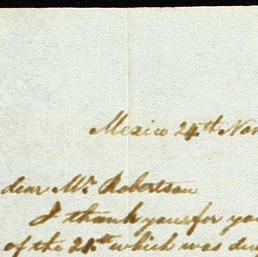 Mexico 24th Nov
dear Mr Robertson
I thank you for you
of the 21st which was